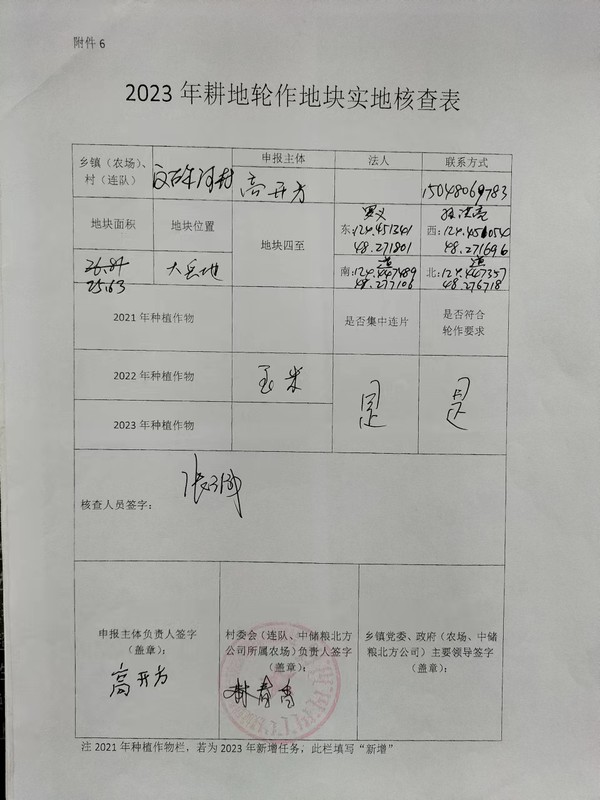 附件 6
2023 年耕地轮作地块实地核查表
乡镇（农场）、
村（连队）
申报主体
法人
联系方式
高开方
15048069783
地块面积
地块位置
地块四至
东:124.451341
48.271801
西:
48.271696
26.84
25.63
南:124.447489
48.277106
北:124.447357
48.276718
2021 年种植作物
是否集中连片
是否符合
轮作要求
2022 年种植作物
玉米
是
是
2023 年种植作物
核查人员签字：
申报主体负责人签字
（盖章）：
高开方
村委会（连队、中储粮北方
公司所属农场）负责人签字
（盖章）：
乡镇党委、政府（农场、中储
粮北方公司）主要领导签字
（盖章）：
注 2021 年种植作物栏，若为 2023 年新增任务，此栏填写“新增”